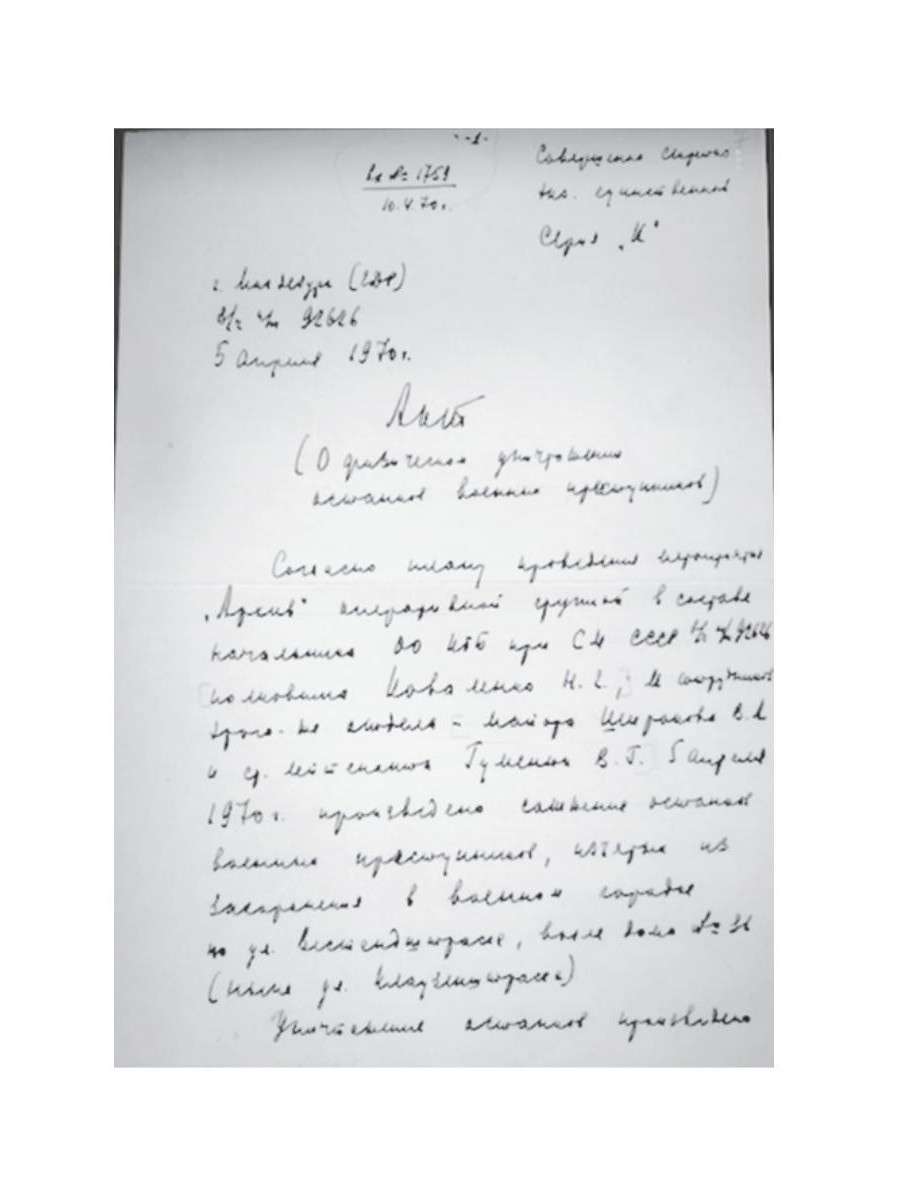 -1-
Вх № 1759
10.4.70г.
Совершенно секретно
экз. единственный
Серия „К"
г. Магдебург (ГДР)
в/ч п/п 92626
5 апреля 1970г.
Акт
(О физическом уничтожении
останков военных преступников)
Согласно плану проведения мероприятия
„Архив" оперативной группой в составе
начальника ОО КГБ при СМ СССР в/ч п/п 92626
полковника Коваленко Н.Г., и сотрудников
того же отдела – майора Широкова В.Н.
и ст. лейтенанта Гуменюк В.Г. 5 апреля
1970г. произведено сожжение останков
военных преступников, изъятых из
захоронения в военном городке
по ул. Вестендштрассе, возле дома № 36
(ныне ул. Клаузенштрассе)
Уничтожение останков произведено